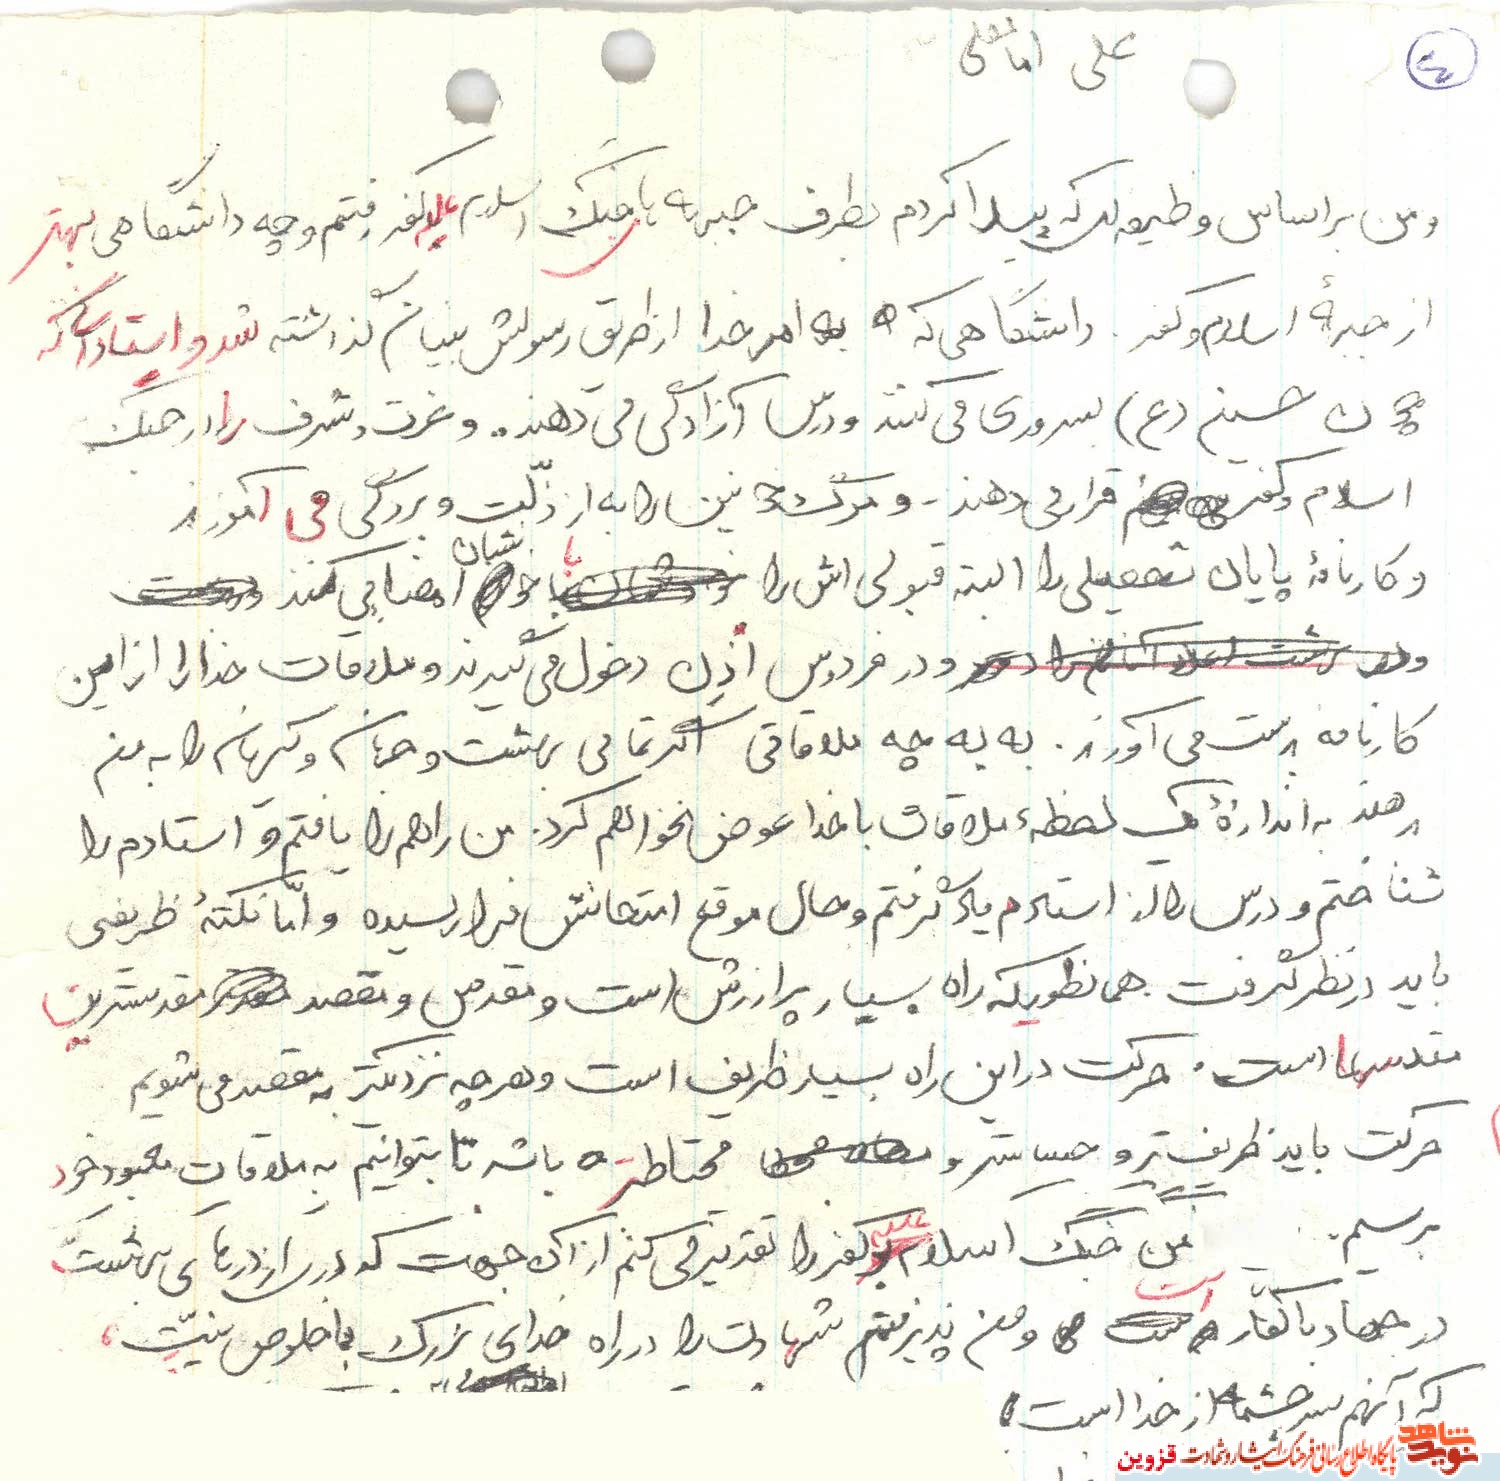 ۴
علی امامقلی
و من براساس وظیفه‌ای که پیدا کردم بطرف جبهه تا جنگ اسلام علیه کفر رفتم و چه دانشگاهی بهتر
از جبههٔ اسلام و کفر. دانشگاهی که به امر خدا از طریق رسولش بنیان گذاشته شد و استادانی که
چون حسین (ع) سروری می کنند و درس آزادگی می دهند. و عزت و شرف را در جنگ
اسلام و کفر قرار می دهند - و مرگ خونین را به از ذلّت و بردگی می آموزند
و کارنامهٔ پایان تحصیلی را البته قبولی اش را با خونشان امضا می کنند
و در فردوس اذن دخول می گیرند و ملاقات خدا را از این
کارنامه بدست می آورند. به به چه ملاقاتی اگر تمامی بهشت و جهان و کیهان را به من
دهند به اندازهٔ یک لحظهٔ ملاقات با خدا عوض نخواهم کرد. من راهم را یافتم و استادم را
شناختم و درس را از استادم یاد گرفتم و حال موقع امتحانش فرا رسیده و امّا نکتهٔ ظریفی
باید در نظر گرفت همانطوریکه راه بسیار پر ارزش است و مقدس و مقصد مقدسترین
مقدسها است. حرکت در این راه بسیار ظریف است و هر چه نزدیکتر به مقصد می شویم
حرکت باید ظریفتر و حساستر و محتاطتر باشد تا بتوانیم به ملاقات معبود خود
برسیم. من جنگ اسلام علیه کفر را تقدیر می کنم از آن جهت که دری از درهای بهشت
در جهاد با کفّار است و من پذیرفتم شهادت را در راه خدای بزرگ با خلوص نیّت،
که آنهم سرچشمه از خدا است
نوید شاهد
پایگاه اطلاع رسانی فرهنگ ایثار و شهادت قزوین